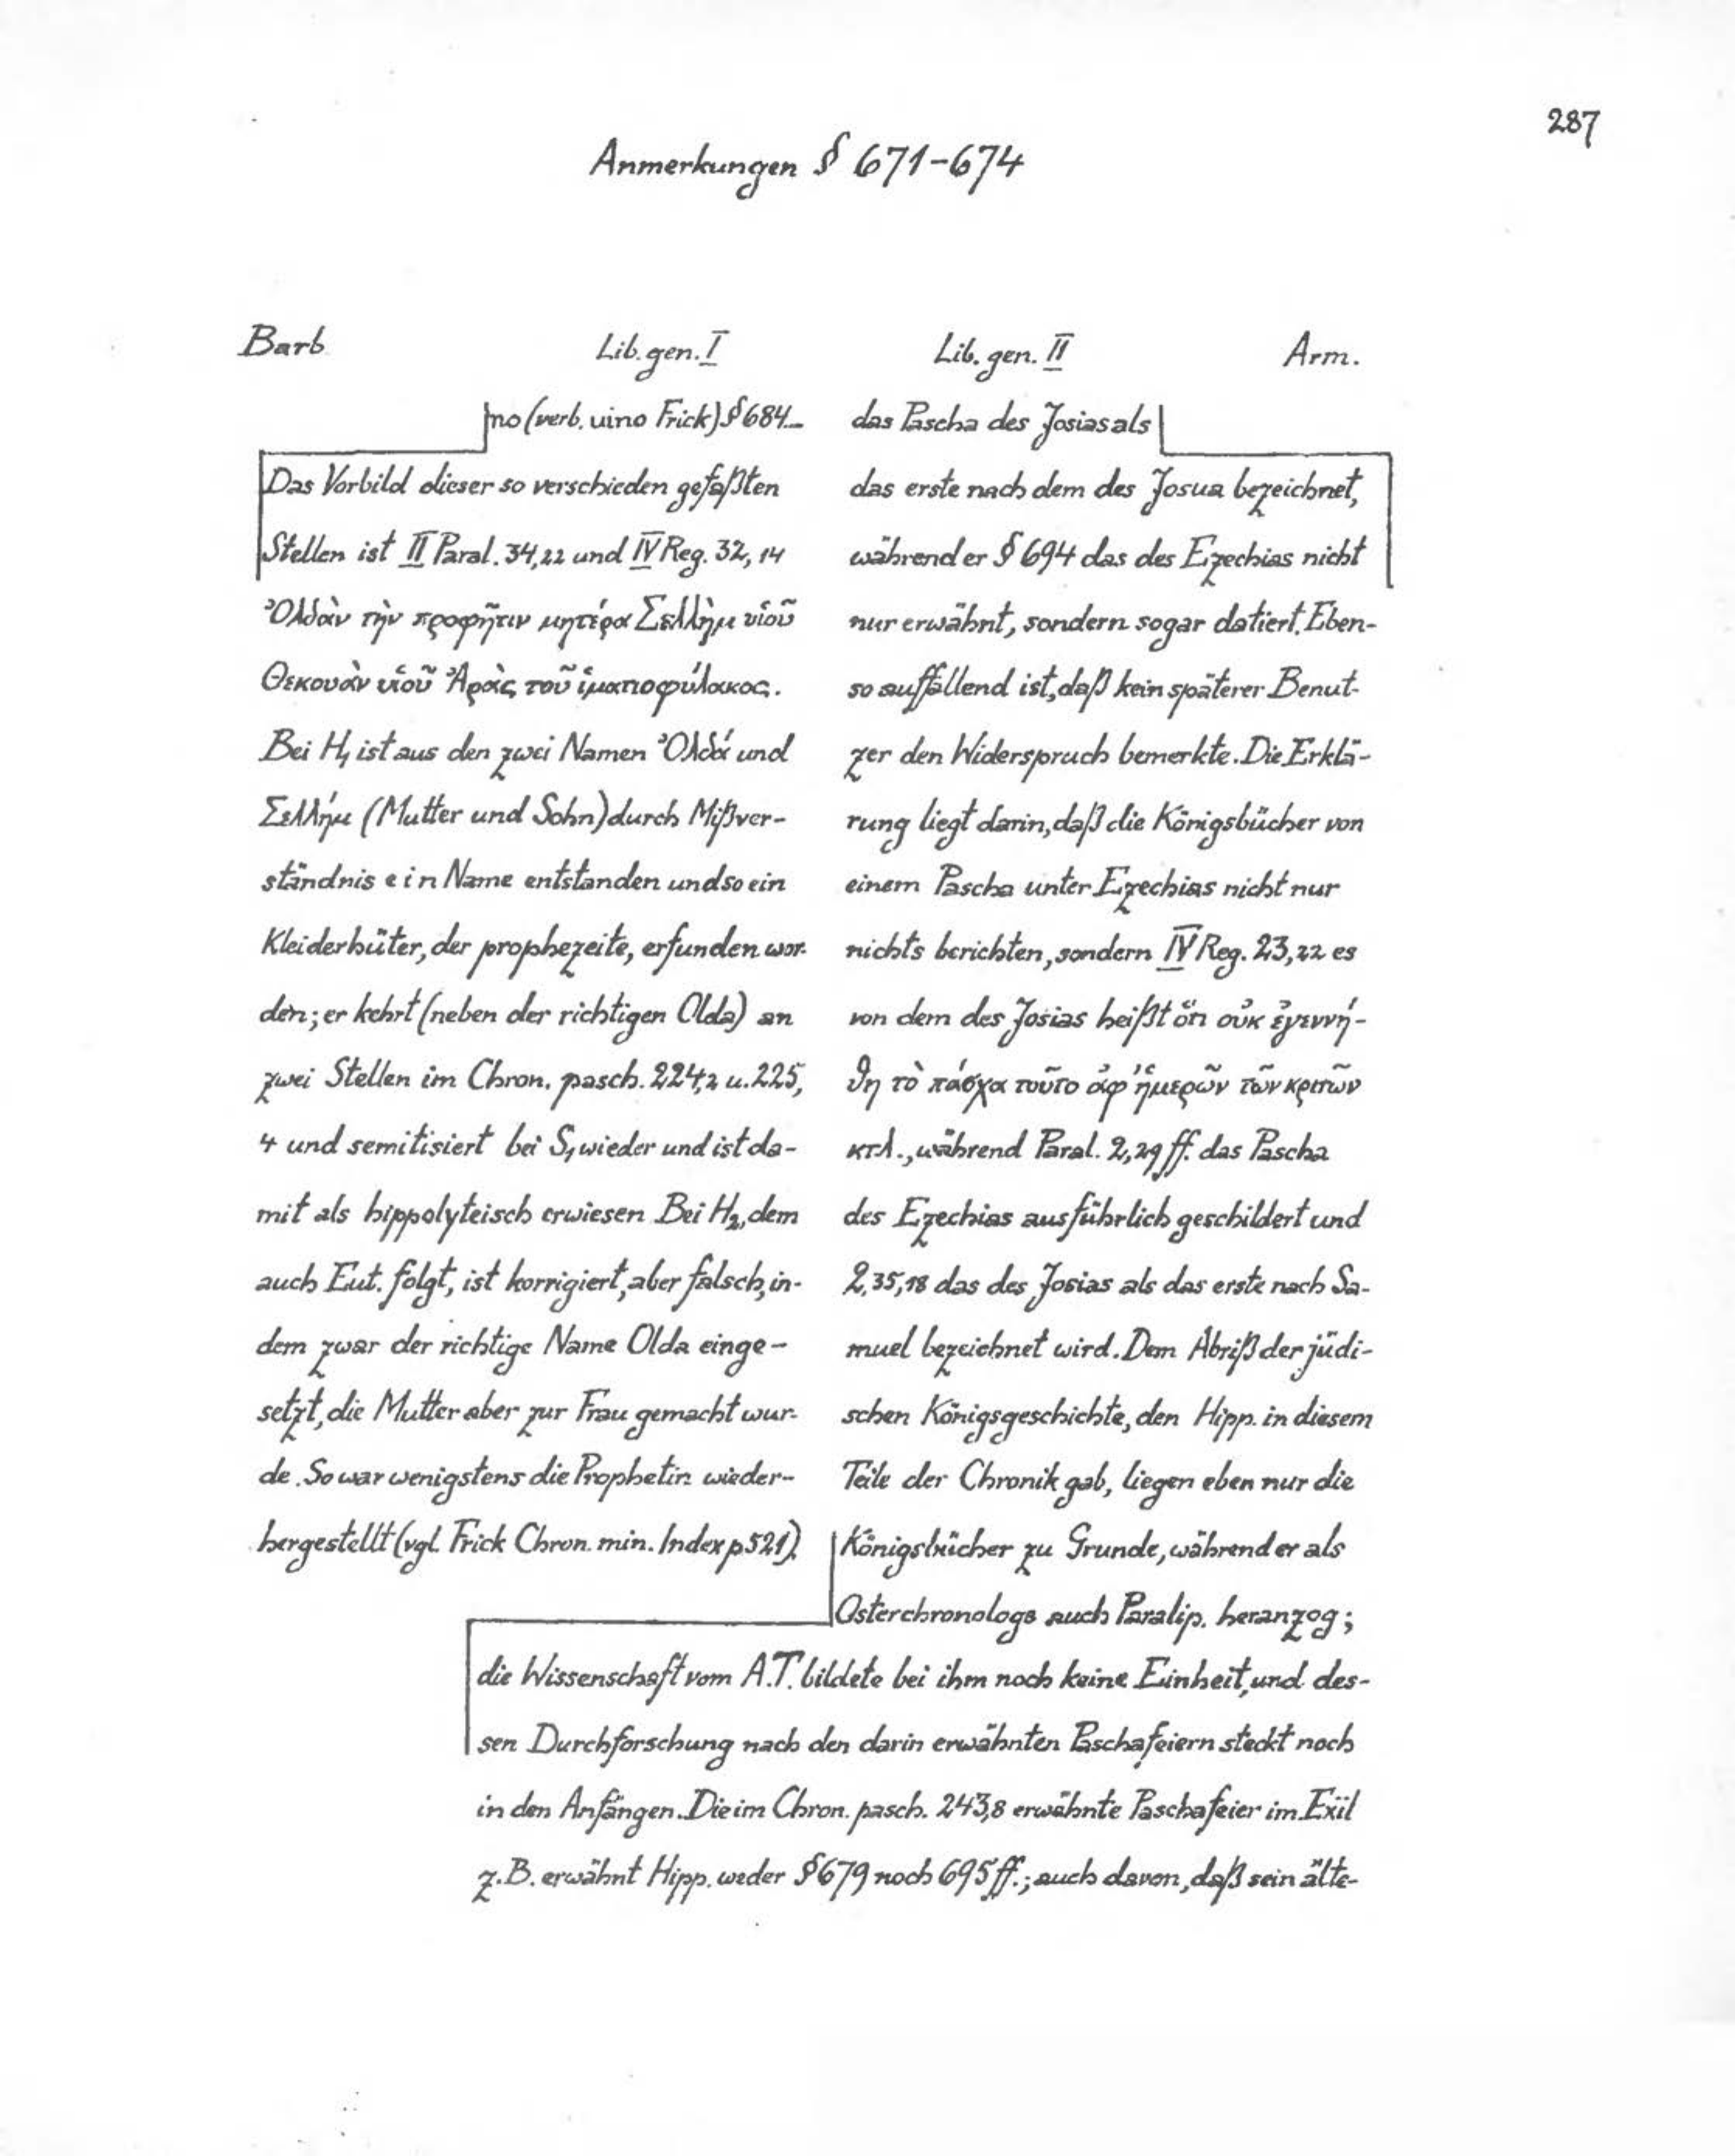 287
Anmerkungen § 671-674
Barb Lib. gen. I Lib. gen. II Arm.
no (verb. uino Frick) § 684...
Das Vorbild dieser so verschieden gefaßten
Stellen ist II Paral. 34,22 und IV Reg. 32, 14
Ὀλδὰν τὴν προφῆτιν μητέρα Σελλὴμ υἱοῦ
Θεκουὰν υἱοῦ Ἀρὰς τοῦ ἱματιοφύλακος.
Bei H₁ ist aus den zwei Namen Ὀλδά und
Σελλήμ (Mutter und Sohn) durch Mißver-
ständnis ein Name entstanden und so ein
Kleiderhüter, der prophezeite, erfunden wor-
den; er kehrt (neben der richtigen Olda) an
zwei Stellen im Chron. pasch. 224,2 u. 225,
4 und semitisiert bei S₁ wieder und ist da-
mit als hippolyteisch erwiesen. Bei H₂, dem
auch Eut. folgt, ist korrigiert, aber falsch, in-
dem zwar der richtige Name Olda einge-
setzt, die Mutter aber zur Frau gemacht wur-
de. So war wenigstens die Prophetin wieder-
hergestellt (vgl. Frick Chron. min. Index p 521).
das Pascha des Josias als
das erste nach dem des Josua bezeichnet,
während er § 694 das des Ezechias nicht
nur erwähnt, sondern sogar datiert. Eben-
so auffallend ist, daß kein späterer Benut-
zer den Widerspruch bemerkte. Die Erklä-
rung liegt darin, daß die Königsbücher von
einem Pascha unter Ezechias nicht nur
nichts berichten, sondern IV Reg. 23,22 es
von dem des Josias heißt ὅτι οὐκ ἐγεννή-
θη τὸ πάσχα τοῦτο ἀφ' ἡμερῶν τῶν κριτῶν
κτλ., während Paral. 2,29 ff. das Pascha
des Ezechias ausführlich geschildert und
2,35,18 das des Josias als das erste nach Sa-
muel bezeichnet wird. Dem Abriß der jüdi-
schen Königsgeschichte, den Hipp. in diesem
Teile der Chronik gab, liegen eben nur die
Königsbücher zu Grunde, während er als
Osterchronologe auch Paralip. heranzog;
die Wissenschaft vom A.T. bildete bei ihm noch keine Einheit, und des-
sen Durchforschung nach den darin erwähnten Paschafeiern steckt noch
in den Anfängen. Die im Chron. pasch. 243,8 erwähnte Paschafeier im Exil
z.B. erwähnt Hipp. weder § 679 noch 695 ff.; auch davon, daß sein älte-